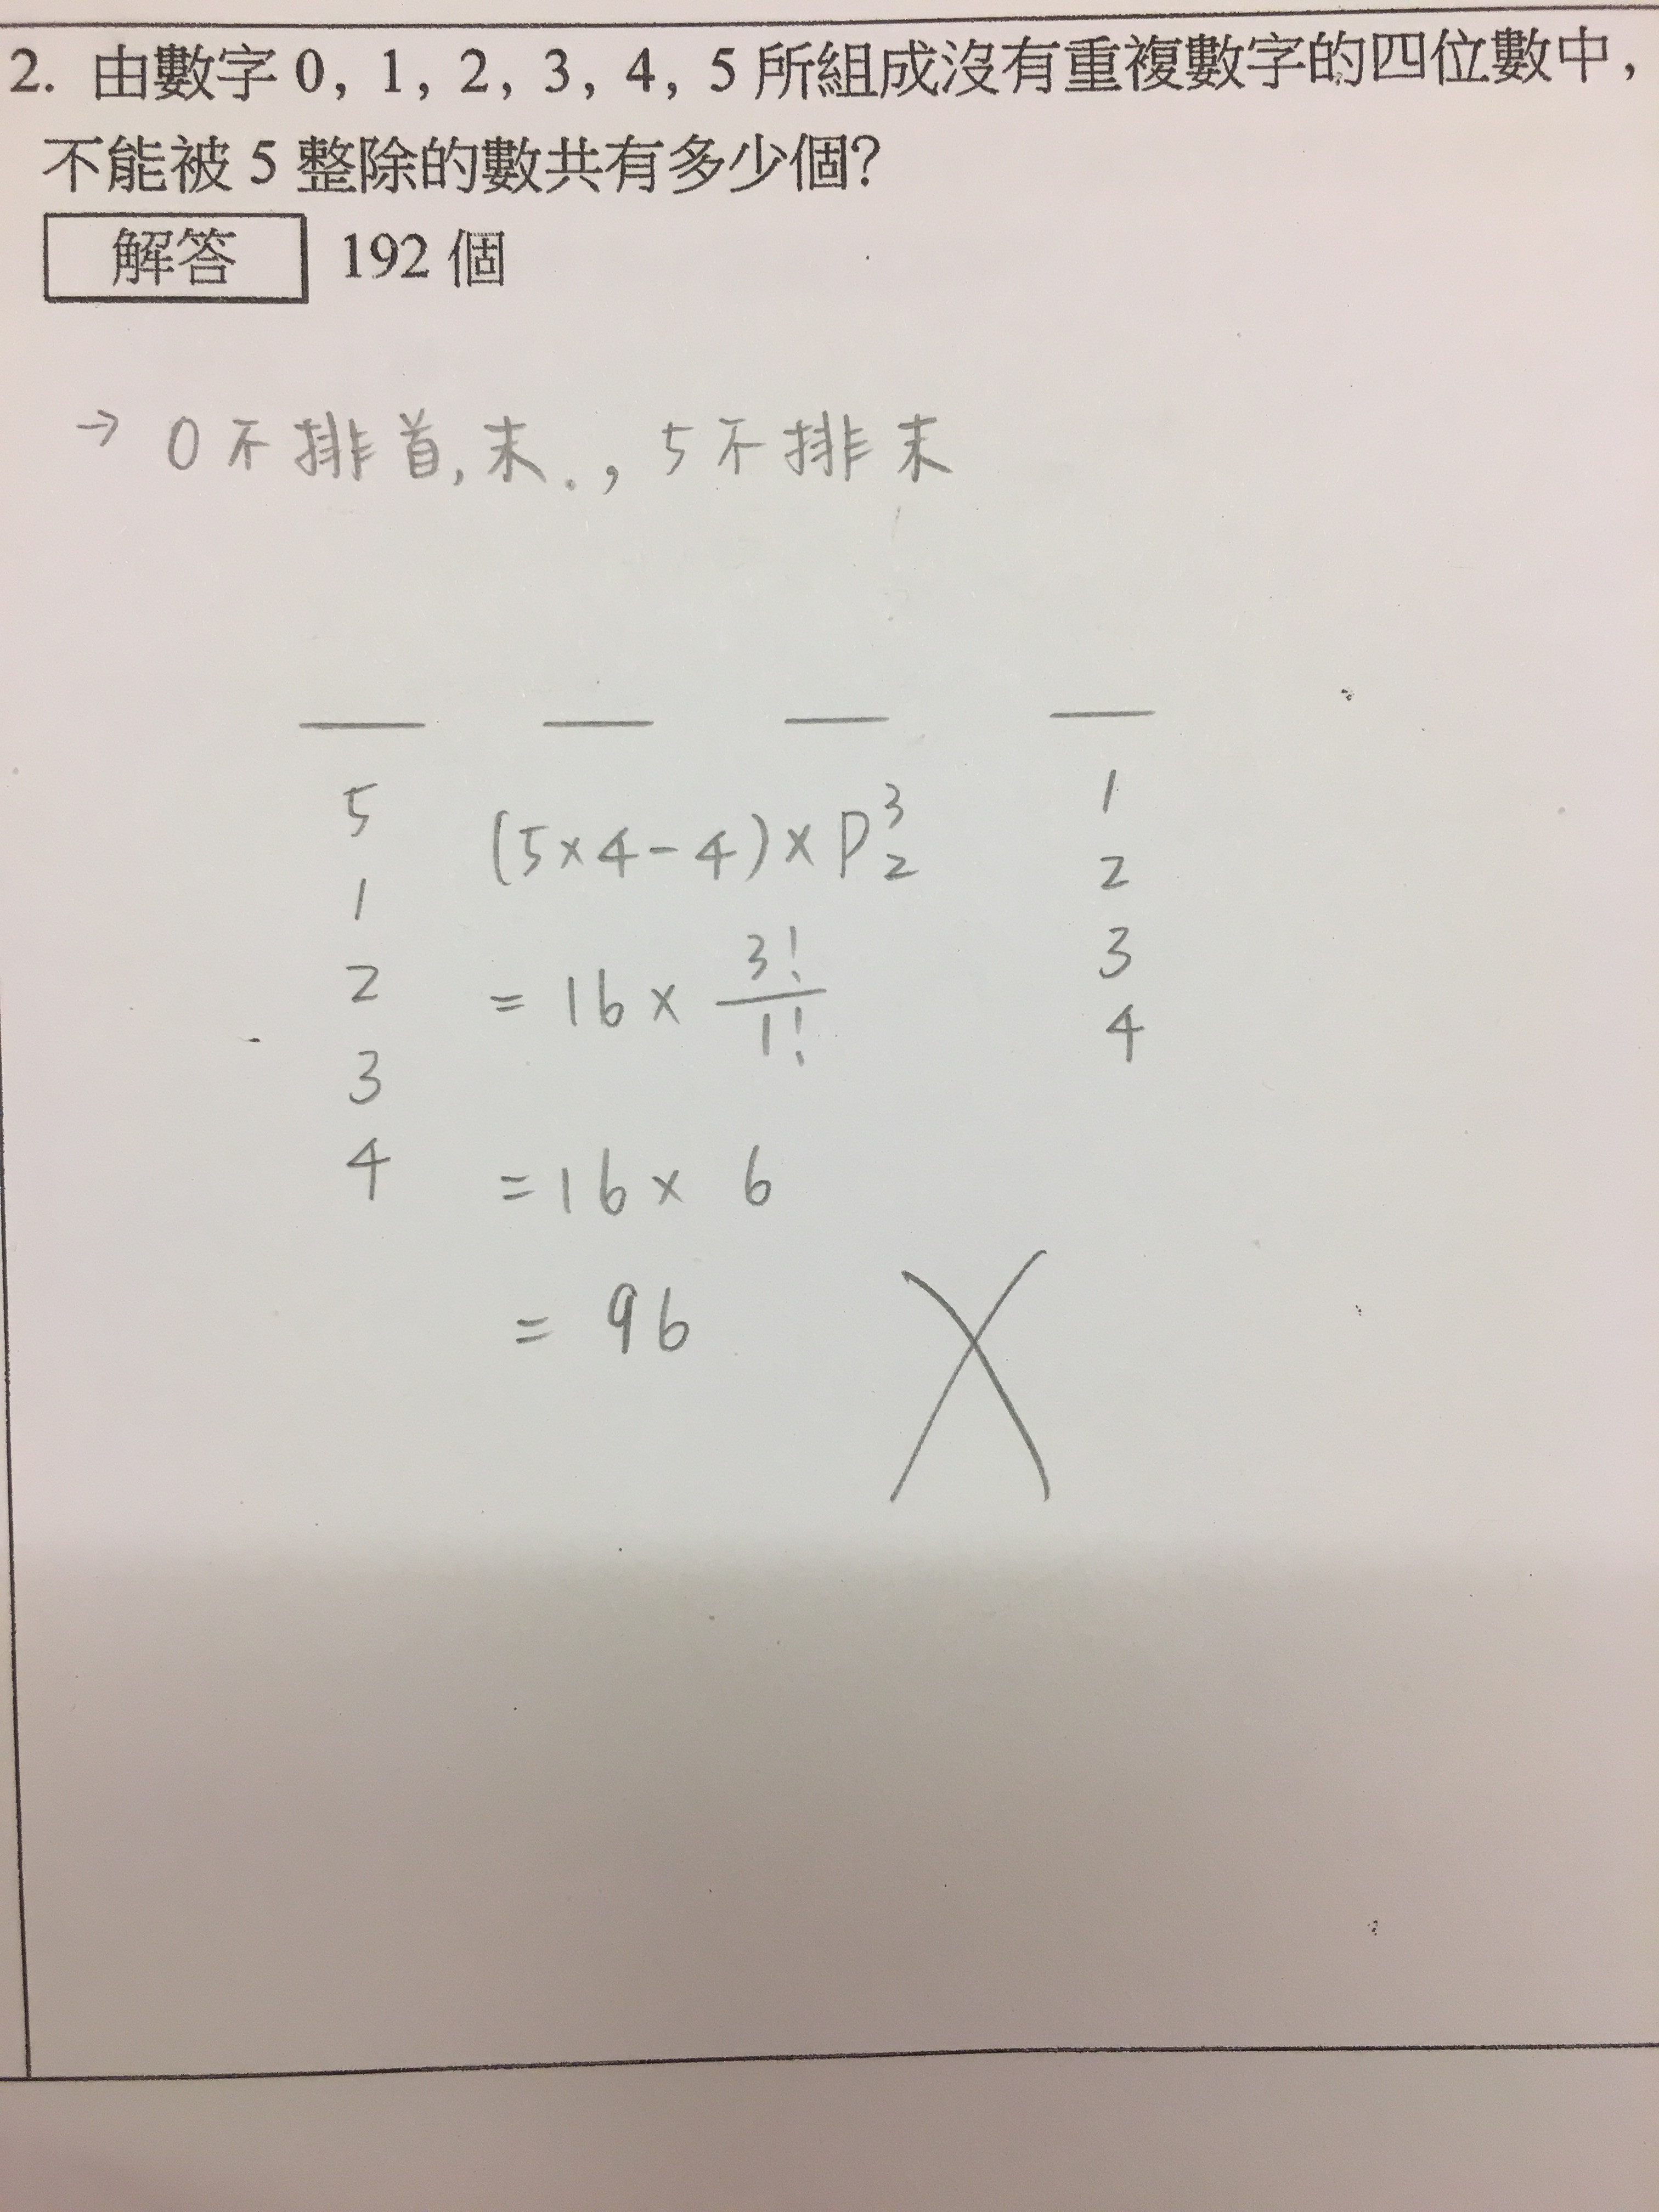 2. 由數字 0, 1, 2, 3, 4, 5 所組成沒有重複數字的四位數中,
不能被 5 整除的數共有多少個?
解答 192 個
→ 0 不排首, 末., 5 不排末
5 (5×4-4)×P³₂ 1
1 2
2 = 16 × 3!/1! 3
3 4
4 = 16 × 6
= 96